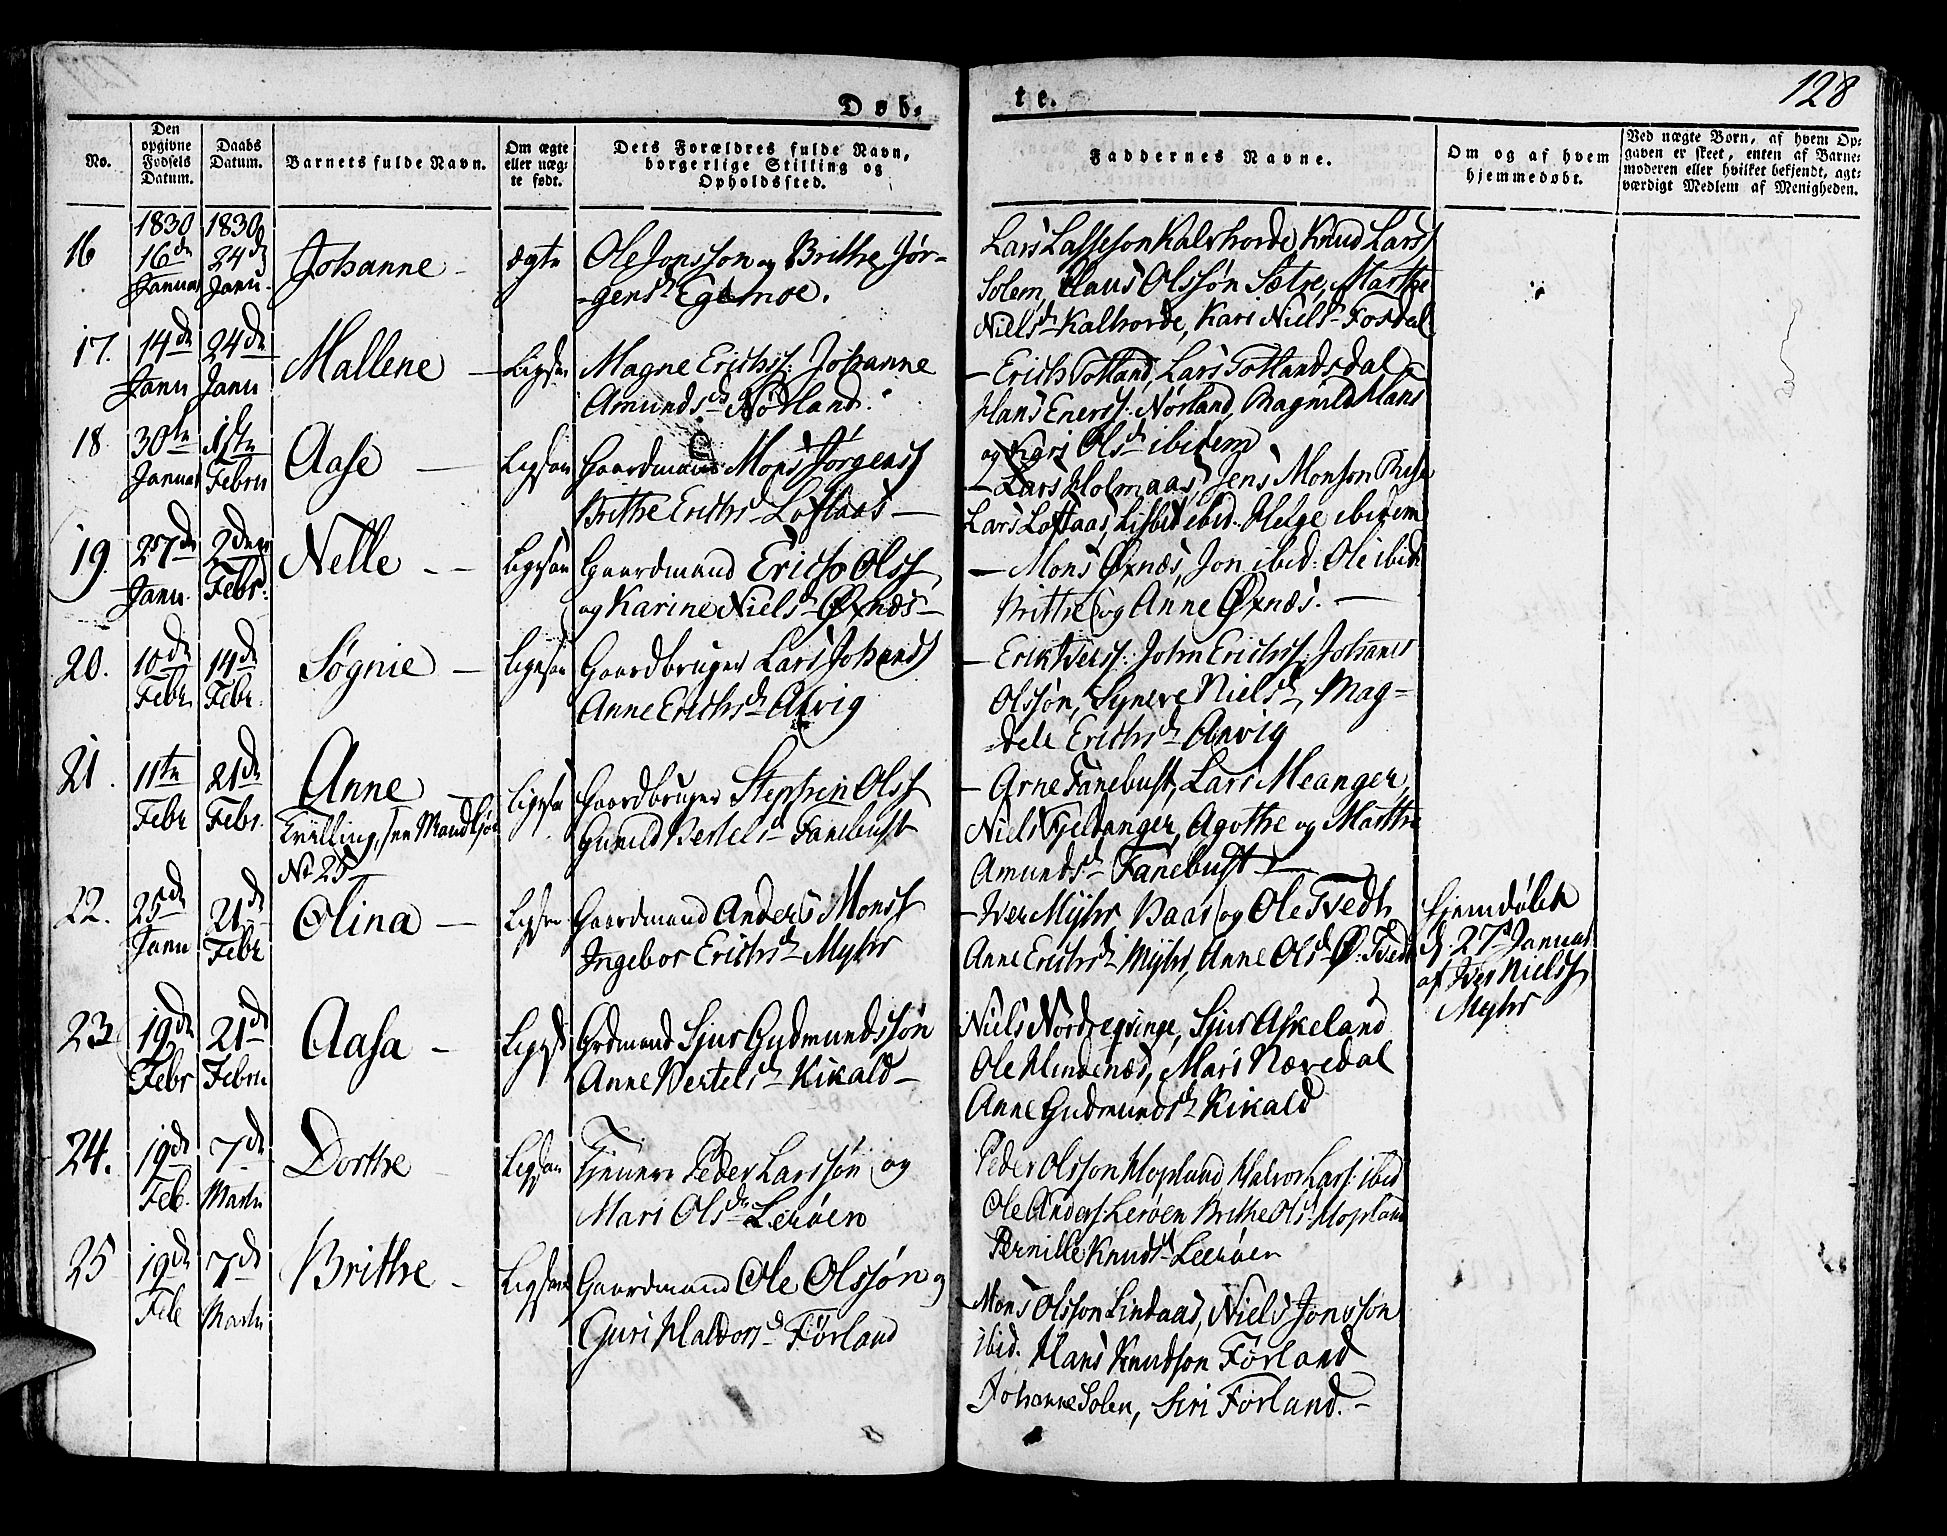 128
Døb-
te.
No.
Den opgivne Fødsels Datum.
Daabs Datum.
Barnets fulde Navn.
Om ægte eller uægte født.
Dets Forældres fulde Navn, borgerlige Stilling og Opholdssted.
Faddernes Navne.
Om og af hvem hjemmedøbt.
Ved uægte Børn, af hvem Opgaven er skeet, enten af Barnemoderen eller hvilket bekjendt, agtværdigt Medlem af Menigheden.
1830 1830
16 16de Januar 24de Janu. Johanne - ægte
Ole Jonsson og Brithe Jør-
-gensd
Lars Lasseson Kalhorde, Knud Larss
Solem, Claus Olssøn Sætre, Marthe
Nielsd Kalhorde, Kari Nielsd Fosdal
17. 14de Janu 24de Janu Mallene - Ligesaa
Magne Erichss: Johanne
Amundsd Nødland.
- Erich Totland, Lars Totlandsdal
Hans Enerss: Nørland, Ragnild Hans
og Kari Olsd ibidem
18 30te Januar 1ste Febru Aase - Ligesaa
Gaardmand Mons Jørgenss
Brithe Erichsd Loftaas -
- Lars Holmaas, Jens Monson Risa
Lars Loftaas, Lisbet ibid. Helge ibidem
19. 27de Janu. 2den Febr. Nelle - - Ligesaa
Gaardmand Erich Olss
og Karine Nielsd Øxnæs -
- Mons Øxnæs, Jon ibid: Ole ibid
Brithe og Anne Øxnæs. -
20. 10de Febr 14de Febr. Søgnie - Ligesaa
Gaardbruger Lars Johanss
Anne Erichsd Alvig
- Erik Iverss: John Erichss: Johanes
Olssøn, Syneve Nielsd, Mag-
dele Erichsd
21. 11te Febr 21de Febr. Anne - Ligesaa
Tvilling, see Mandkjøn
No 25
Gaardbruger Stephen Olss
Gunild Bertelsd Fanebust
- Arne Fanebust, Lars Meanger,
Niels Kjeldanger, Agothe og Marthe
Amundsd Fanebust
22. 25de Janu 21de Febr Olina - Ligesaa
Gaardmand Anders Monss
Ingebor Erichsd Myhr
- Iver Myhr Baas og Ole Tvedt,
Anne Erichsd Myhr, Anne Olsd Ø. Tvedt
hjemdøbt
d. 27d Januar
af Iver Nielss
Myhr
23 19de Febr 21de Febru Aasa - Ligesaa
Grdmand Sjur Gudmundssøn
Anne Bertelsd Kikald -
Niels Nordreqvinge, Sjur Askeland
Ole Hindenæs, Mari Nævedal
Anne Gudmundsd Kikald
24. 19de Feb. 7de Marts Dorthe Ligesaa
Tjenere Peder Larssøn og
Mari Olsd Lerøen
Peder Olsson Hopland Halvor Larss: ibid
Ole Anderss Lerøen Brithe Olsd Hopland
Pernille Knudsd Leerøen
25 19de Feb 7de Marts Brithe - Ligesaa
Gaardmand Ole Olssøn og
Guri Haldorsd Førland
Mons Olsson Lindaas, Niels Jonsson
ibid. Hans Knudson Førland
Johanne Solem, Siri Førland. -